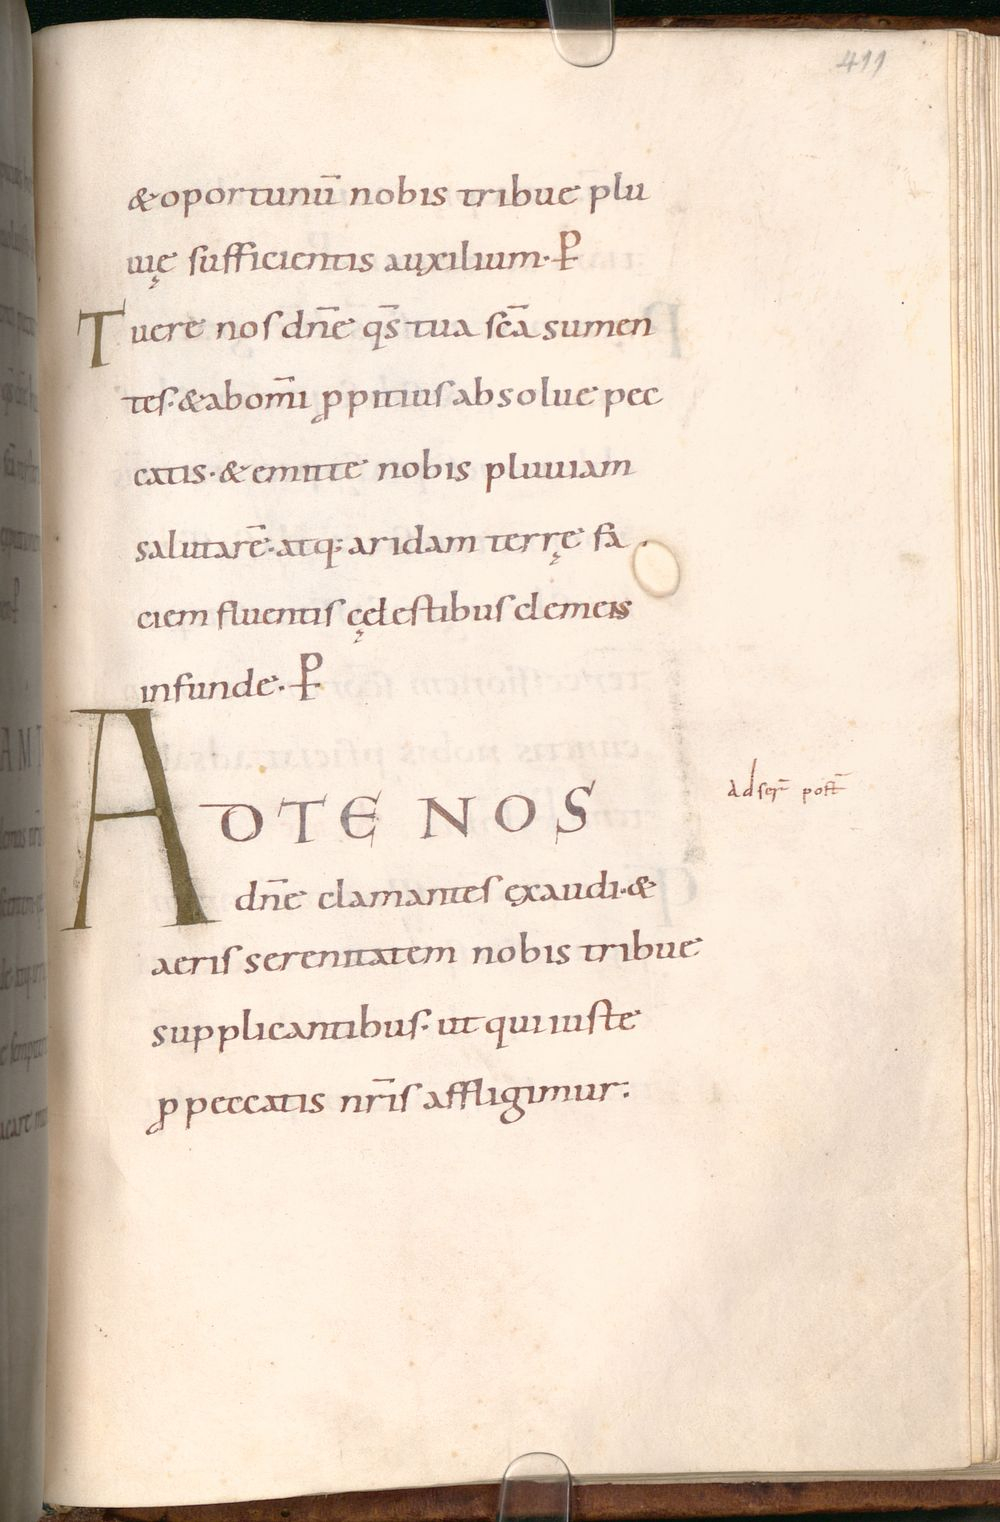 411
&oportunū nobis tribue plu
uię sufficientis auxilium· P
Tuere nos dn̄e qs̄ tua sc̄a sumen
tes·&abom̄i ꝓpitius absolue pec
catis·&emitte nobis pluuiam
salutarē·atq; aridam terrę fa
ciem fluentis cęlestibus clemens
infunde· P
ADTE NOS
dn̄e clamantes exaudi·&
aeris serenitatem nobis tribue
supplicantibus· ut qui iuste
ꝓ peccatis nr̄is affligimur;
ad ser̄ post̄